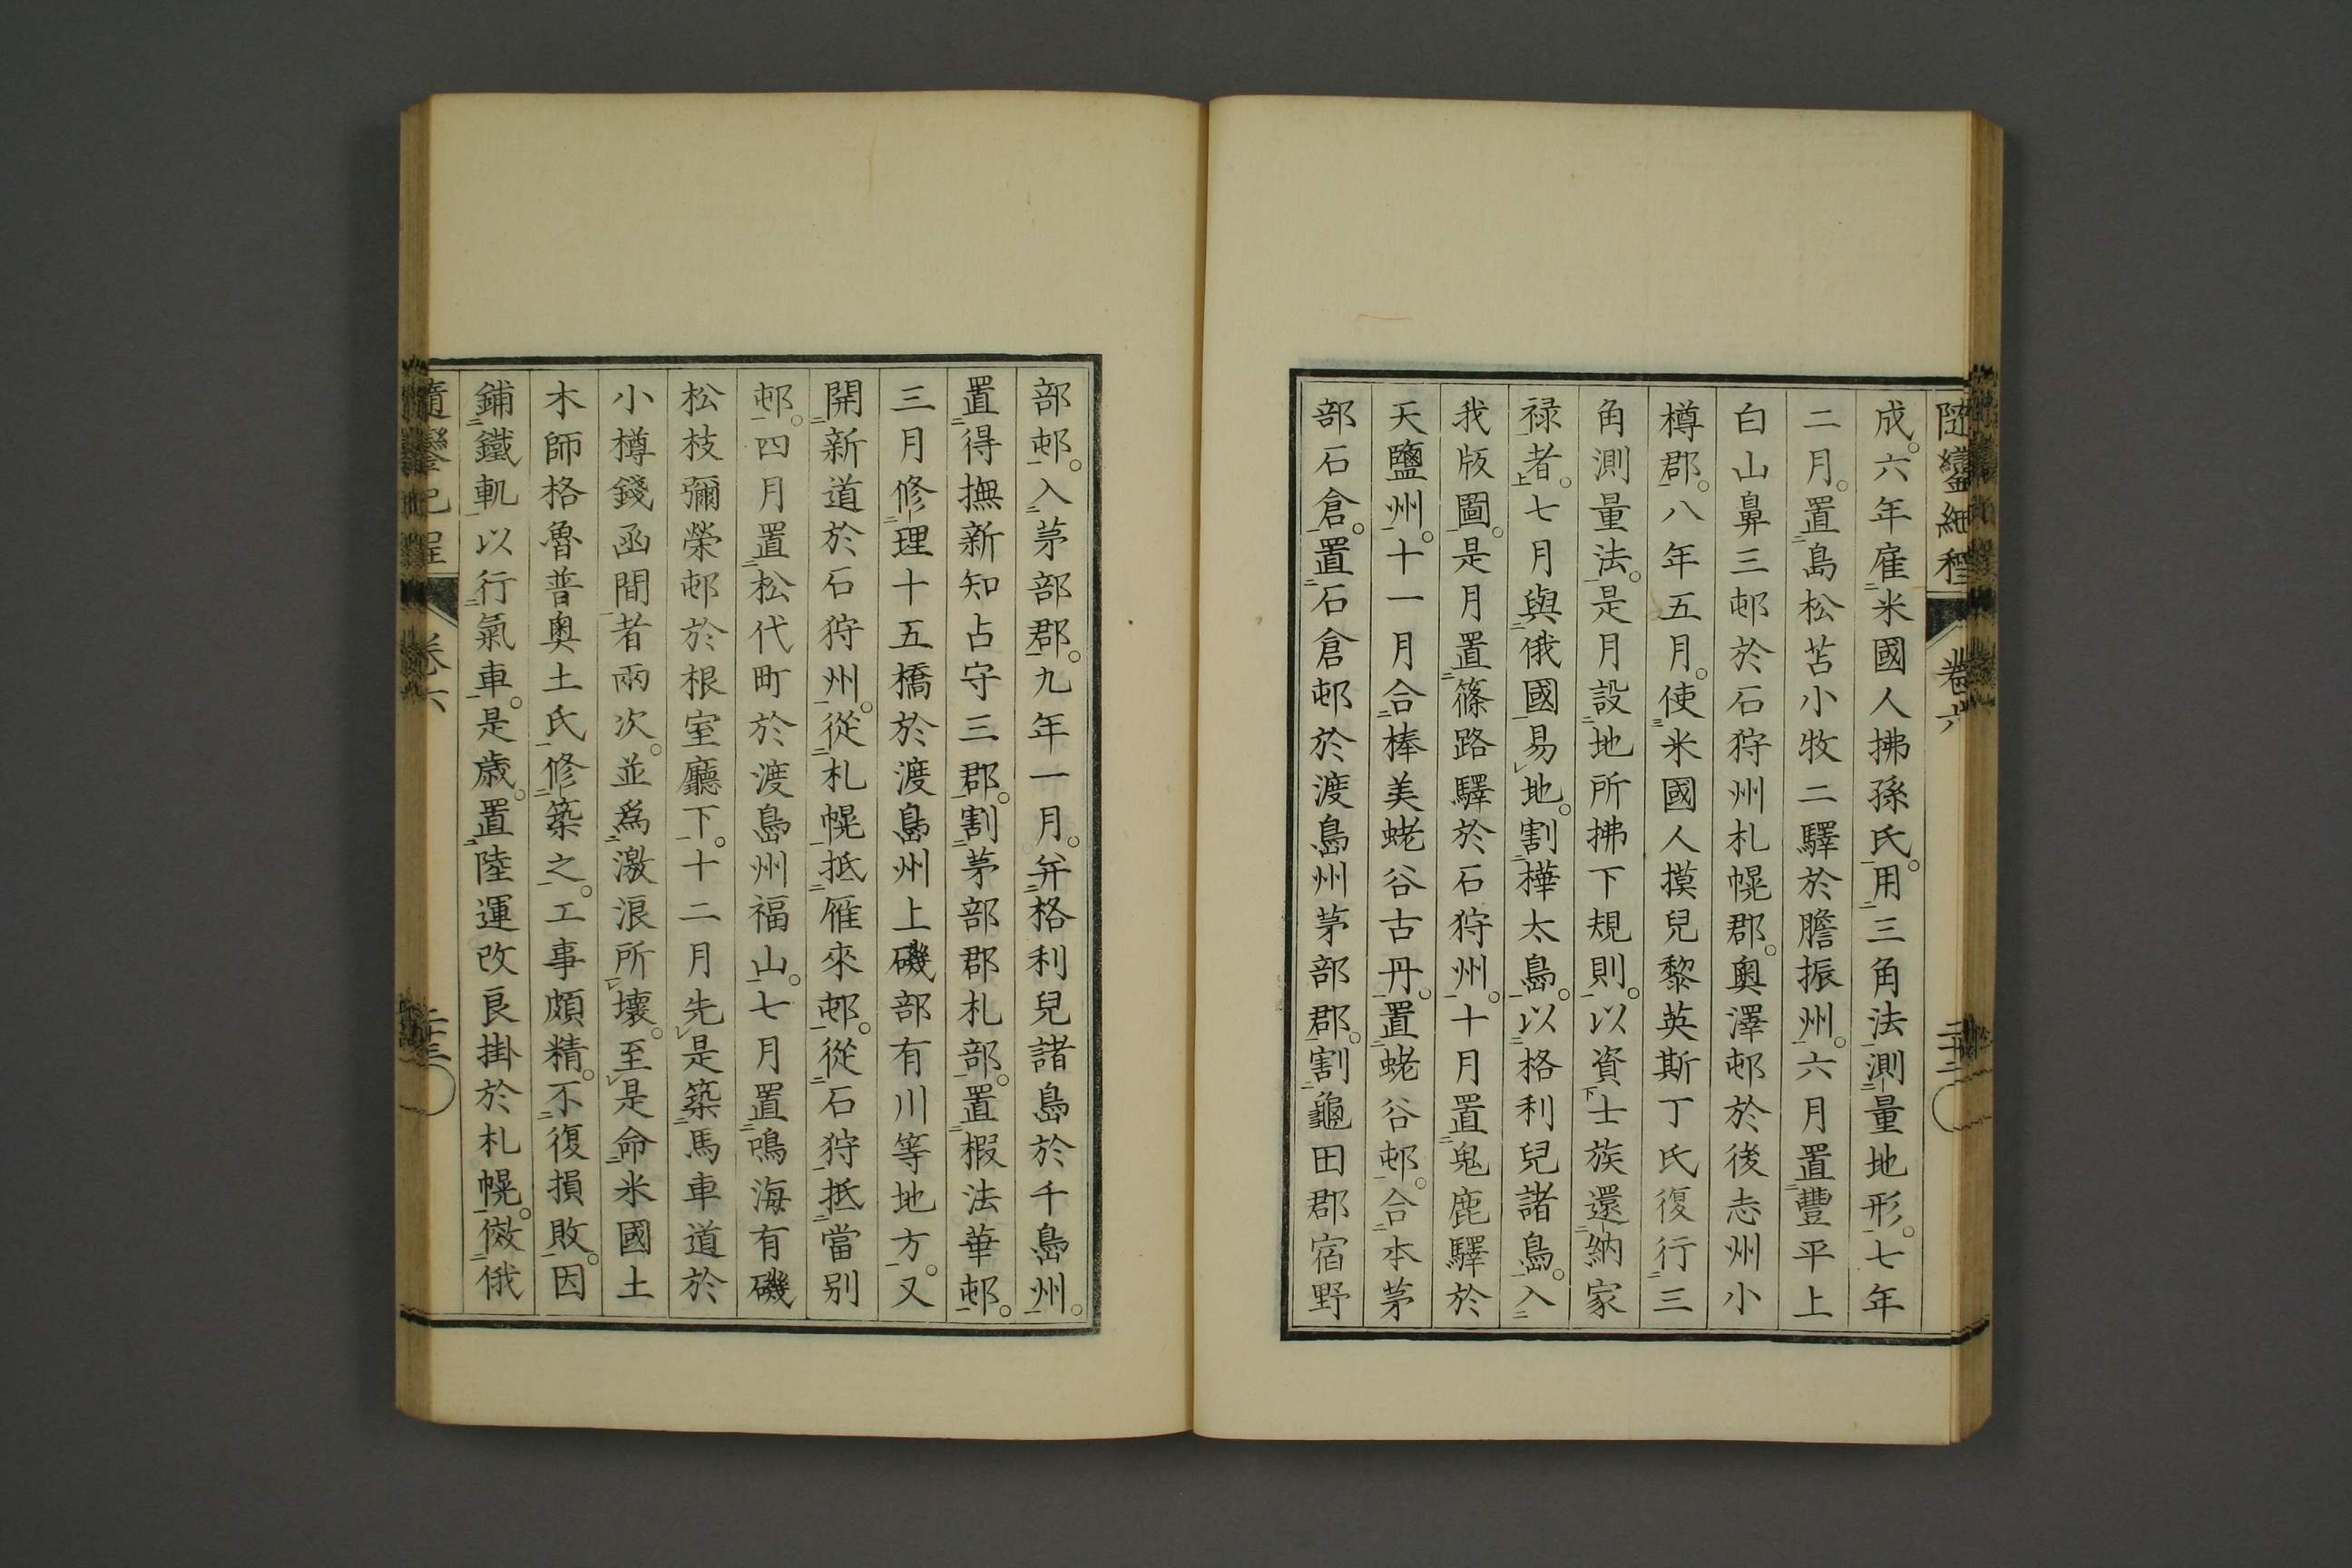 隨鑾紀程 卷六 二十二
成。六年雇米國人拂孫氏。用三角法測量地形。七年
二月。置島松苫小牧二驛於膽振州。六月置豐平上
白山鼻三邨於石狩州札幌郡。奧澤邨於後志州小
樽郡。八年五月。使米國人摸兒黎英斯丁氏復行三
角測量法。是月設地所拂下規則。以資士族還納家
禄者。七月與俄國易地。割樺太島。以格利兒諸島。入
我版圖。是月置篠路驛於石狩州。十月置鬼鹿驛於
天鹽州。十一月合棒美蛯谷古丹。置蛯谷邨。合本茅
部石倉。置石倉邨於渡島州茅部郡。割龜田郡宿野
部邨。入茅部郡。九年一月。并格利兒諸島於千島州。
置得撫新知占守三郡。割茅部郡札部。置椵法華邨。
三月修理十五橋於渡島州上磯部有川等地方。又
開新道於石狩州。從札幌抵雁來邨。從石狩抵當别
邨。四月置松代町於渡島州福山。七月置鳴海有磯
松枝彌榮邨於根室廳下。十二月先是築馬車道於
小樽錢函間者兩次。並爲激浪所壞。至是命米國土
木師格魯普奧土氏修築之。工事頗精。不復損敗。因
鋪鐵軌以行氣車。是歲。置陸運改良掛於札幌。倣俄
隨鑾紀程 卷六 二十三